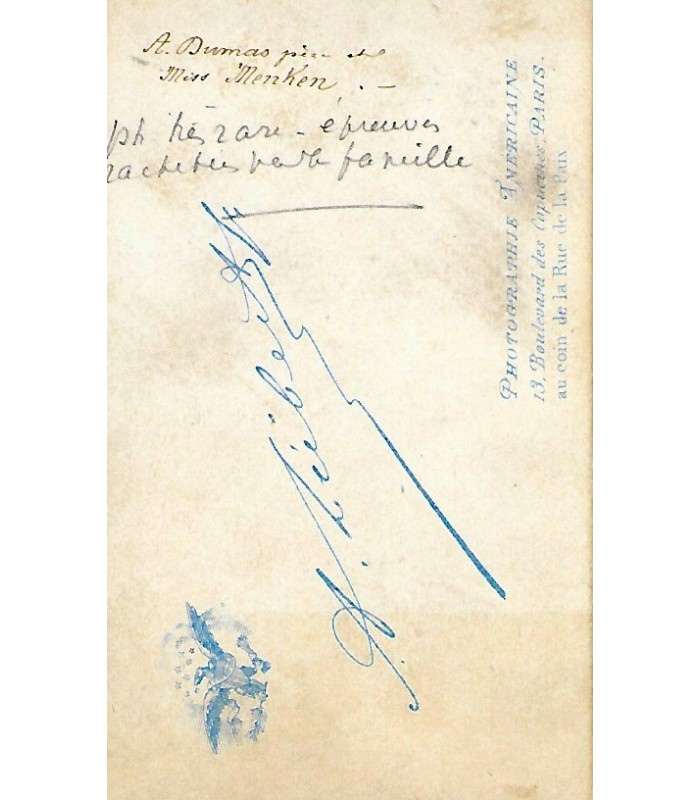 A. Dumas père et
Miss Menken . –
ph très rare – épreuves
rachetées par la famille
A. Liébert
PHOTOGRAPHIE AMÉRICAINE
13, Boulevard des Capucines PARIS.
au coin de la Rue de la Paix